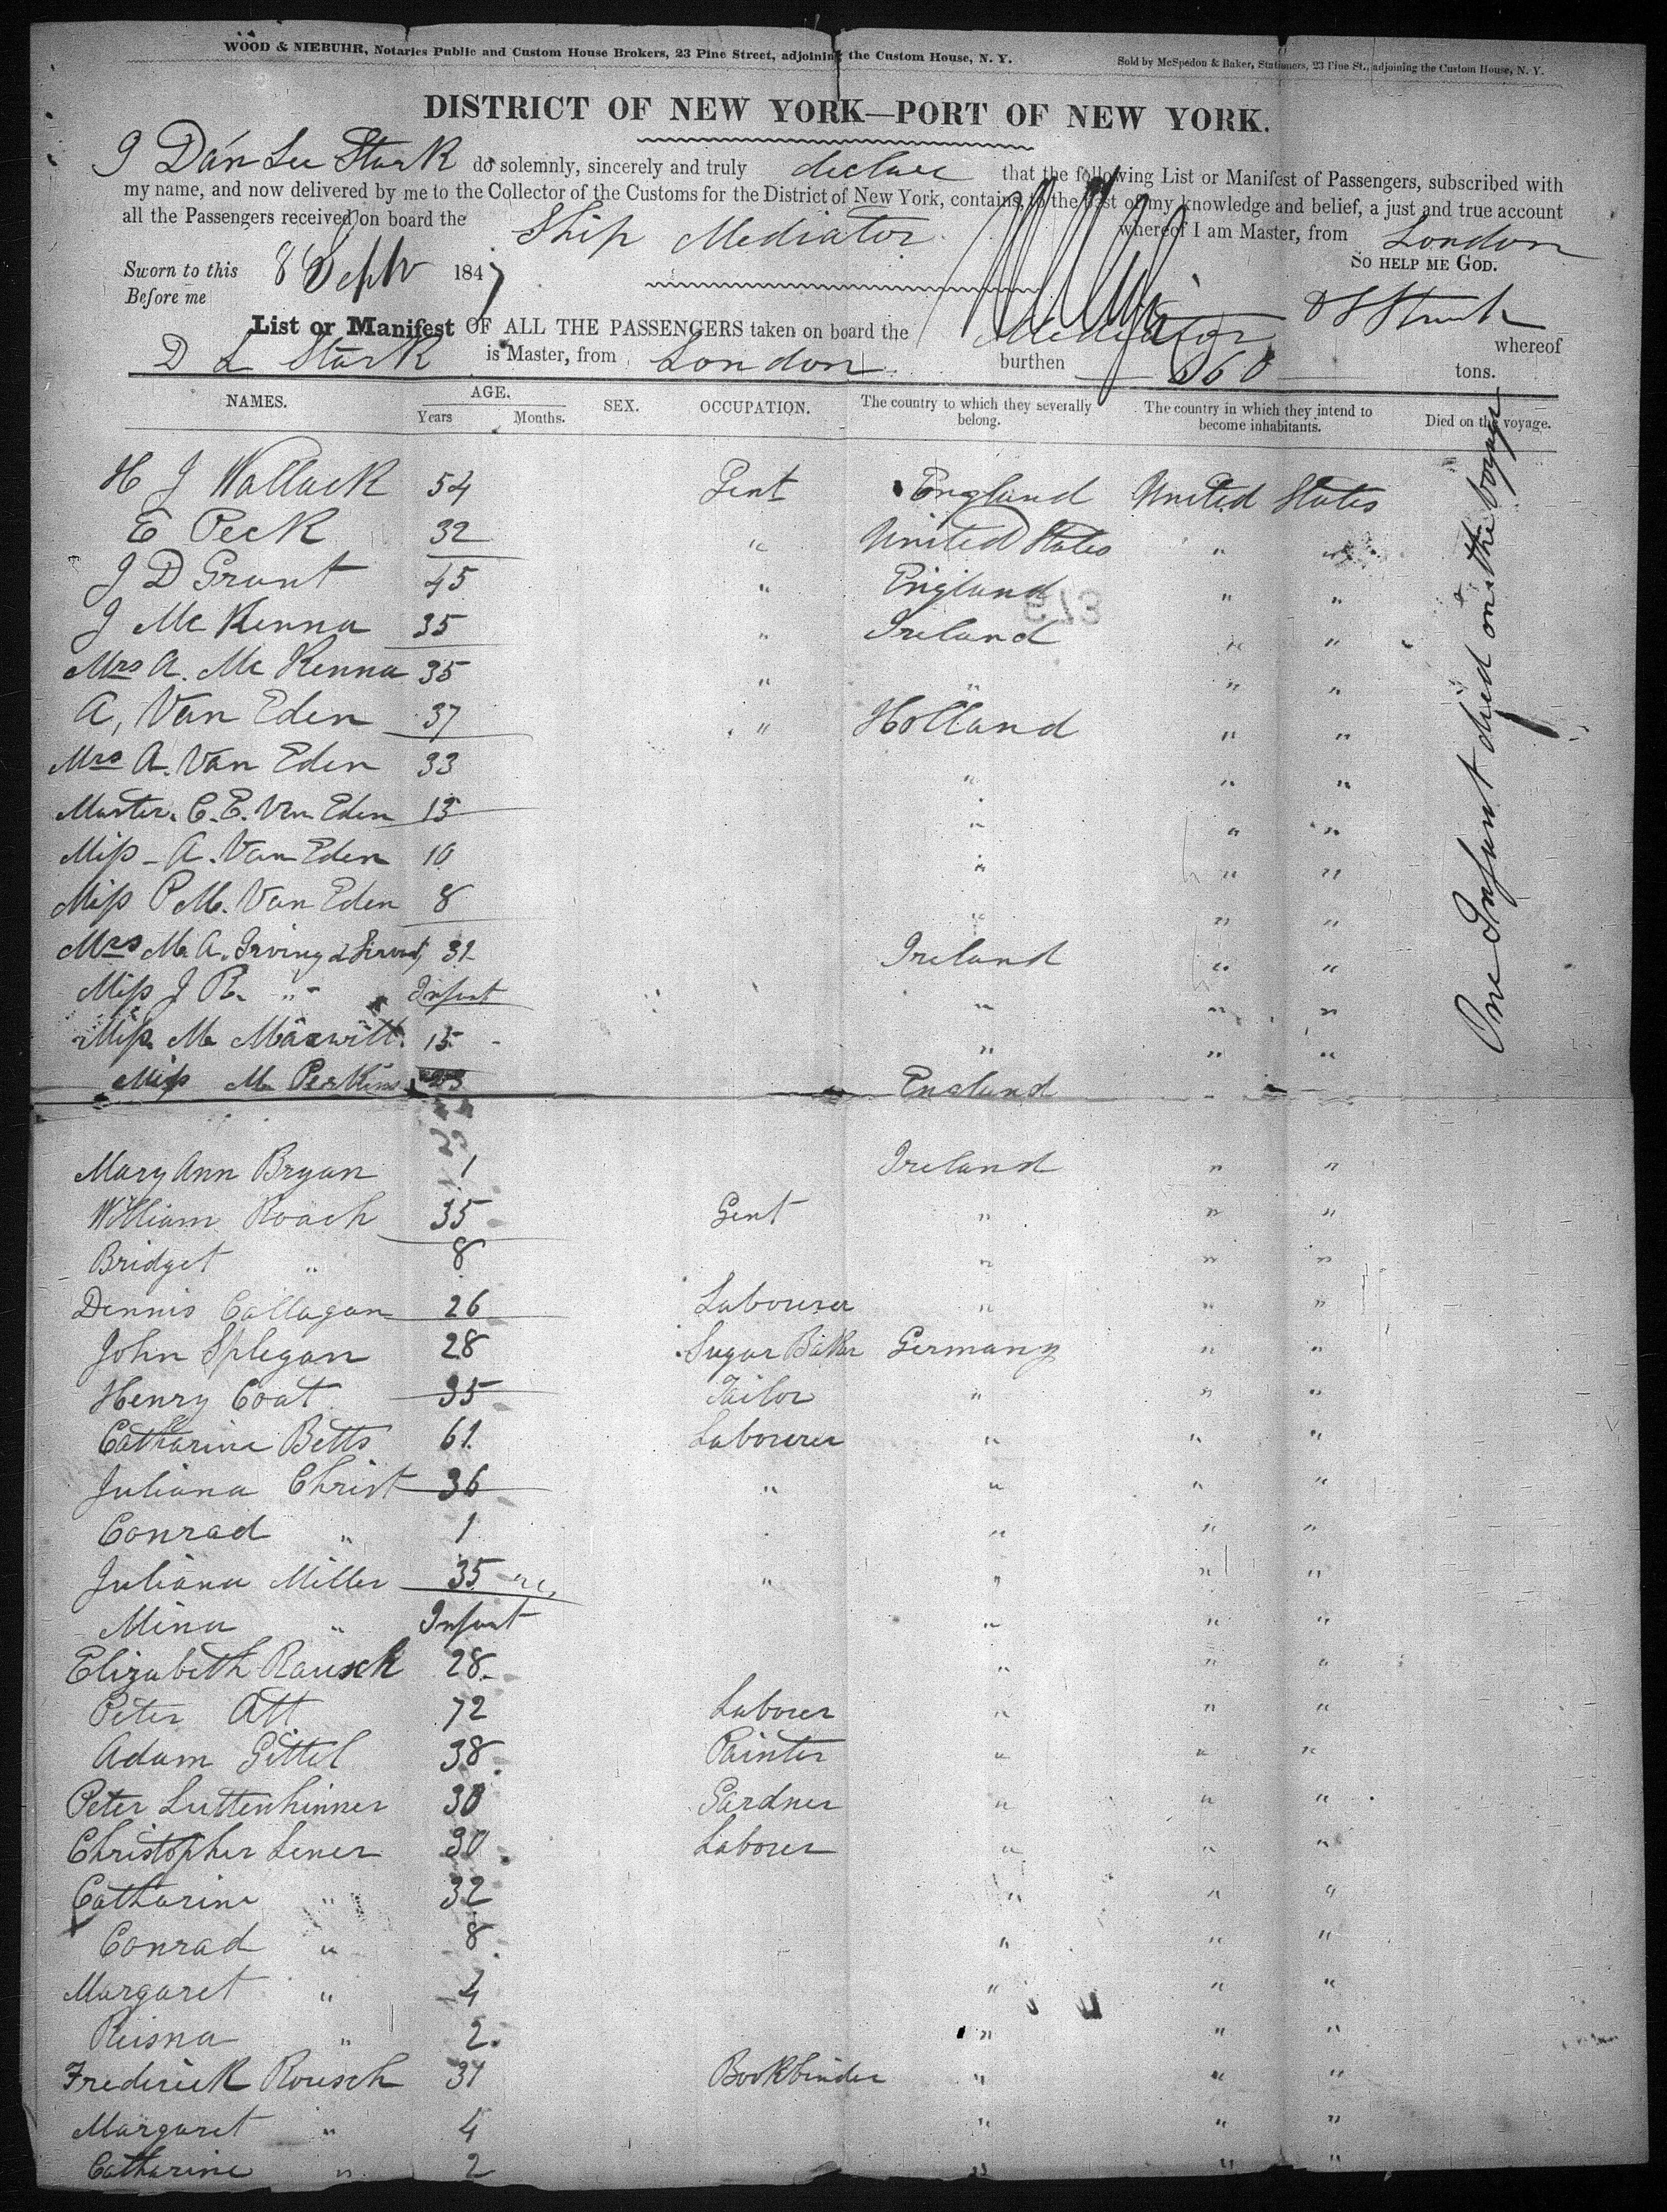 WOOD & NIEBUHR, Notaries Public and Custom House Brokers, 23 Pine Street, adjoining the Custom House, N. Y.
Sold by McSpedon & Baker, Stationers, 23 Pine St., adjoining the Custom House, N. Y.
DISTRICT OF NEW YORK—PORT OF NEW YORK.
I Dan Lee Stark do solemnly, sincerely and truly declare that the following List or Manifest of Passengers, subscribed with
my name, and now delivered by me to the Collector of the Customs for the District of New York, contains, to the best of my knowledge and belief, a just and true account
all the Passengers received on board the Ship Mediator whereof I am Master, from London
SO HELP ME GOD.
Sworn to this 8 Sept 1847
Before me
D L Stark
List or Manifest OF ALL THE PASSENGERS taken on board the Mediator whereof
D L Stark is Master, from London burthen 660 tons.
NAMES. AGE. SEX. OCCUPATION. The country to which they severally belong. The country in which they intend to become inhabitants. Died on the voyage.
Years Months.
H J Wallack 54 Gent England United States
E Peck 32 " United States " "
J D Grant 45 " England " "
J McKenna 35 " Ireland " "
Mrs A. McKenna 35 " " " "
A, Van Eden 37 " Holland " "
Mrs A. Van Eden 33 " " "
Master. C. E. Van Eden 13 " " "
Miss - A. Van Eden 10 " " "
Miss P M. Van Eden 8 " " "
Mrs M. A. Irving & Servt, 31 Ireland " "
Miss J R. " Infant " " "
Miss. M 15 " " "
Miss M Perkins 23 England " "
Mary Ann Bryan 1 Ireland " "
William Roach 35 Gent " " "
Bridget " 8 " " "
Dennis Callagan 26 Labourer " " "
John Splegan 28 Sugar Baker Germany " "
Henry Coat 35 Tailor " " "
Catharine Betts 61 Labourer " " "
Juliana Christ 36 " " " "
Conrad " 1 " " "
Juliana Miller 35 " " " "
Mina " Infant " " "
Elizabeth Rausch 28 " " "
Peter Att 72 Laborer " " "
Adam Gittel 38 Painter " " "
Peter Luttenhinner 30 Gardner " " "
Christopher Lener 30 Laborer " " "
Catharine " 32 " " "
Conrad " 8 " " "
Margaret " 4 " " "
" 2 " " "
Frederick Rousch 31 Bookbinder " " "
Margaret " 4 " " "
Catharine " 2 " " "
One Infant died on the voyage